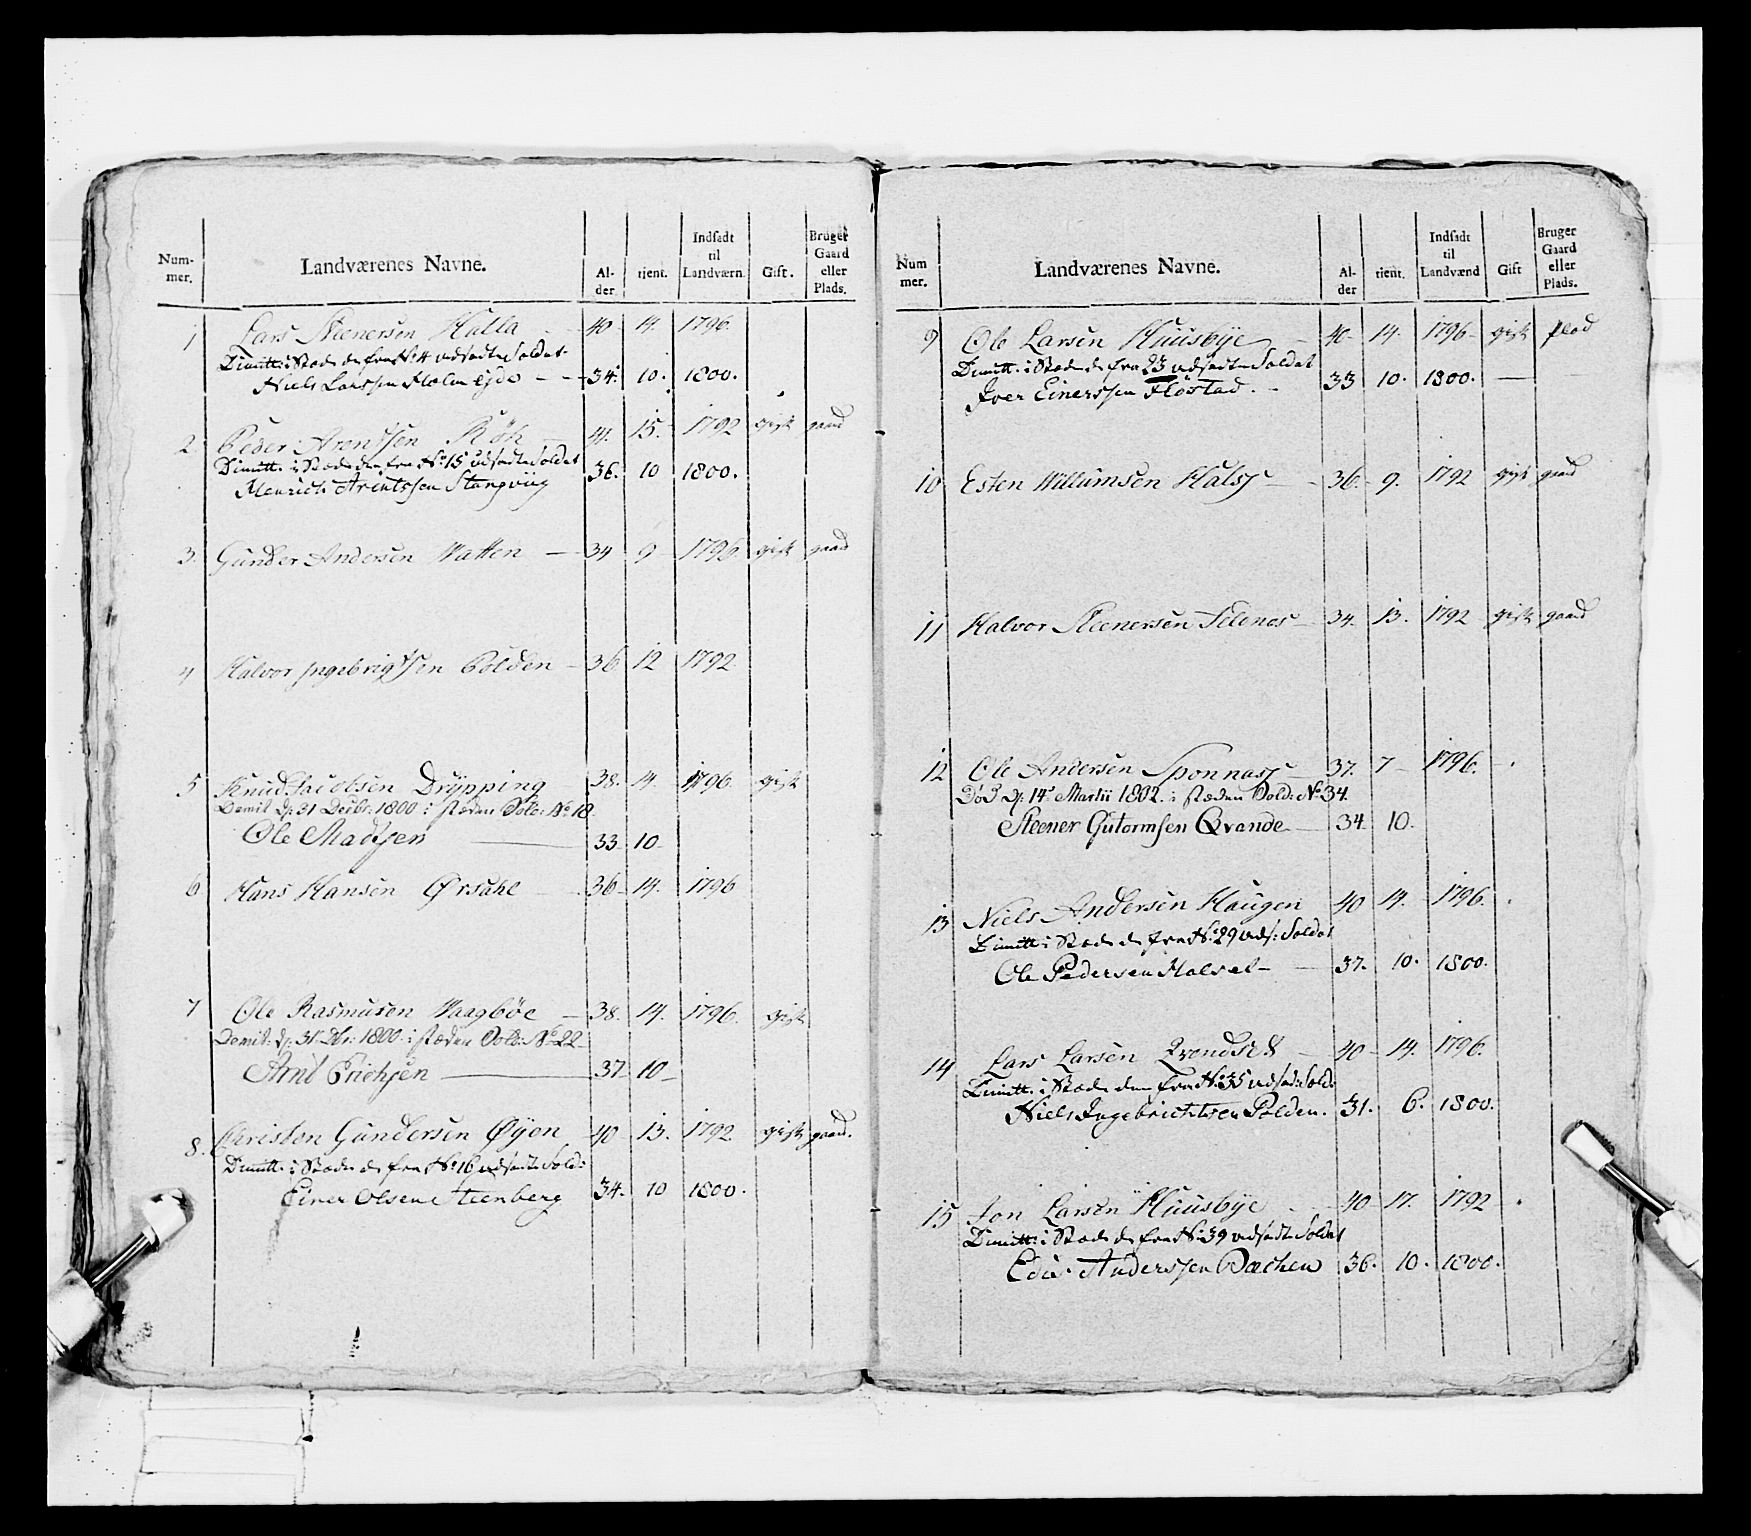 Num-
mer.
Landværenes Navne.
Al-
der
tient.
Indsadt
til
Landværn.
Gift.
Bruger
Gaard
eller
Plads.
1 Lars Steenersen Halla 40 14. 1796.
Dimitt: i Stæde den fra No 4 udsadte Soldat
Niels Larssen Holm Eyde 34. 10. 1800.
2 Peder Arentsen Röh 15. 1792 gift gaard
Dimitt: i Stæde den fra No 15 udsadte Soldat 36. 10 1800.
Henrich Arentssen Stangviig
3. Gunder Andersen Vatten 34 9 1796. gift gaard
4 Halvor Ingebrigtsen Polden 36 12 1792.
5 Knud Jacobsen Drøpping 38. 14. 1796. gift
Demit. d: 31 Decbr: 1800 i stæden Sold: No 18.
Ole Madsen 33 10
6 Hans Hansen Ørsahl 36 14. 1796
7 Ole Rasmusen Vaagbøe 38. 14. 1796. gift
Demit: d: 31 Dbr: 1800. i stæden Sold: No 22
Arnt Erichsen 37 10
8. Christen Gundersen Øyen 40 13. 1792 gift gaard.
Dimitt: i Stæde den fra No 16 udsadte Sold:
Einer Olsen Steenberg 34. 10 1800.
Num
mer.
Landværenes Navne.
Al-
der
tient.
Indsadt
til
Landvænd
Gift
Bruger
Gaard
eller
Plads.
9 Ole Larsen Huusbÿe 40 14. 1796 gift Plad
Dimitt: i Stæde de fra 23 udsadte Soldat
Iver Einerssen Flöstad. 33 10. 1800.
10 Esten Willumsen Halss 36. 9. 1792 gift gaard
11 Halvor Steenersen Selenes 34. 13. 1792 gift gaard
12 Ole Andersen Sponnass 37. 7 1796.
Død d: 14 Martii 1802. i stæden Sold: No 34.
Steener Gutormsen Qvande 34 10.
13 Niels Andersen Haugen 40 14. 1796.
Dimitt: i Stæde de fra No 29 uds: Soldat
Ole Pedersen Halset 37. 10. 1800.
14 Lars Larsen 40 14. 1796.
Dimitt: i Stæde den fra No 35 udsadt: Sold:
Niels Ingebrichtsen Polden. 31. 6. 1800.
15 Jon Larsen Huusbÿe 40 17. 1792
Dimitt: i Stæde de fra No 39 udsadte Soldat
Anderssen Bachen 36. 10. 1800.